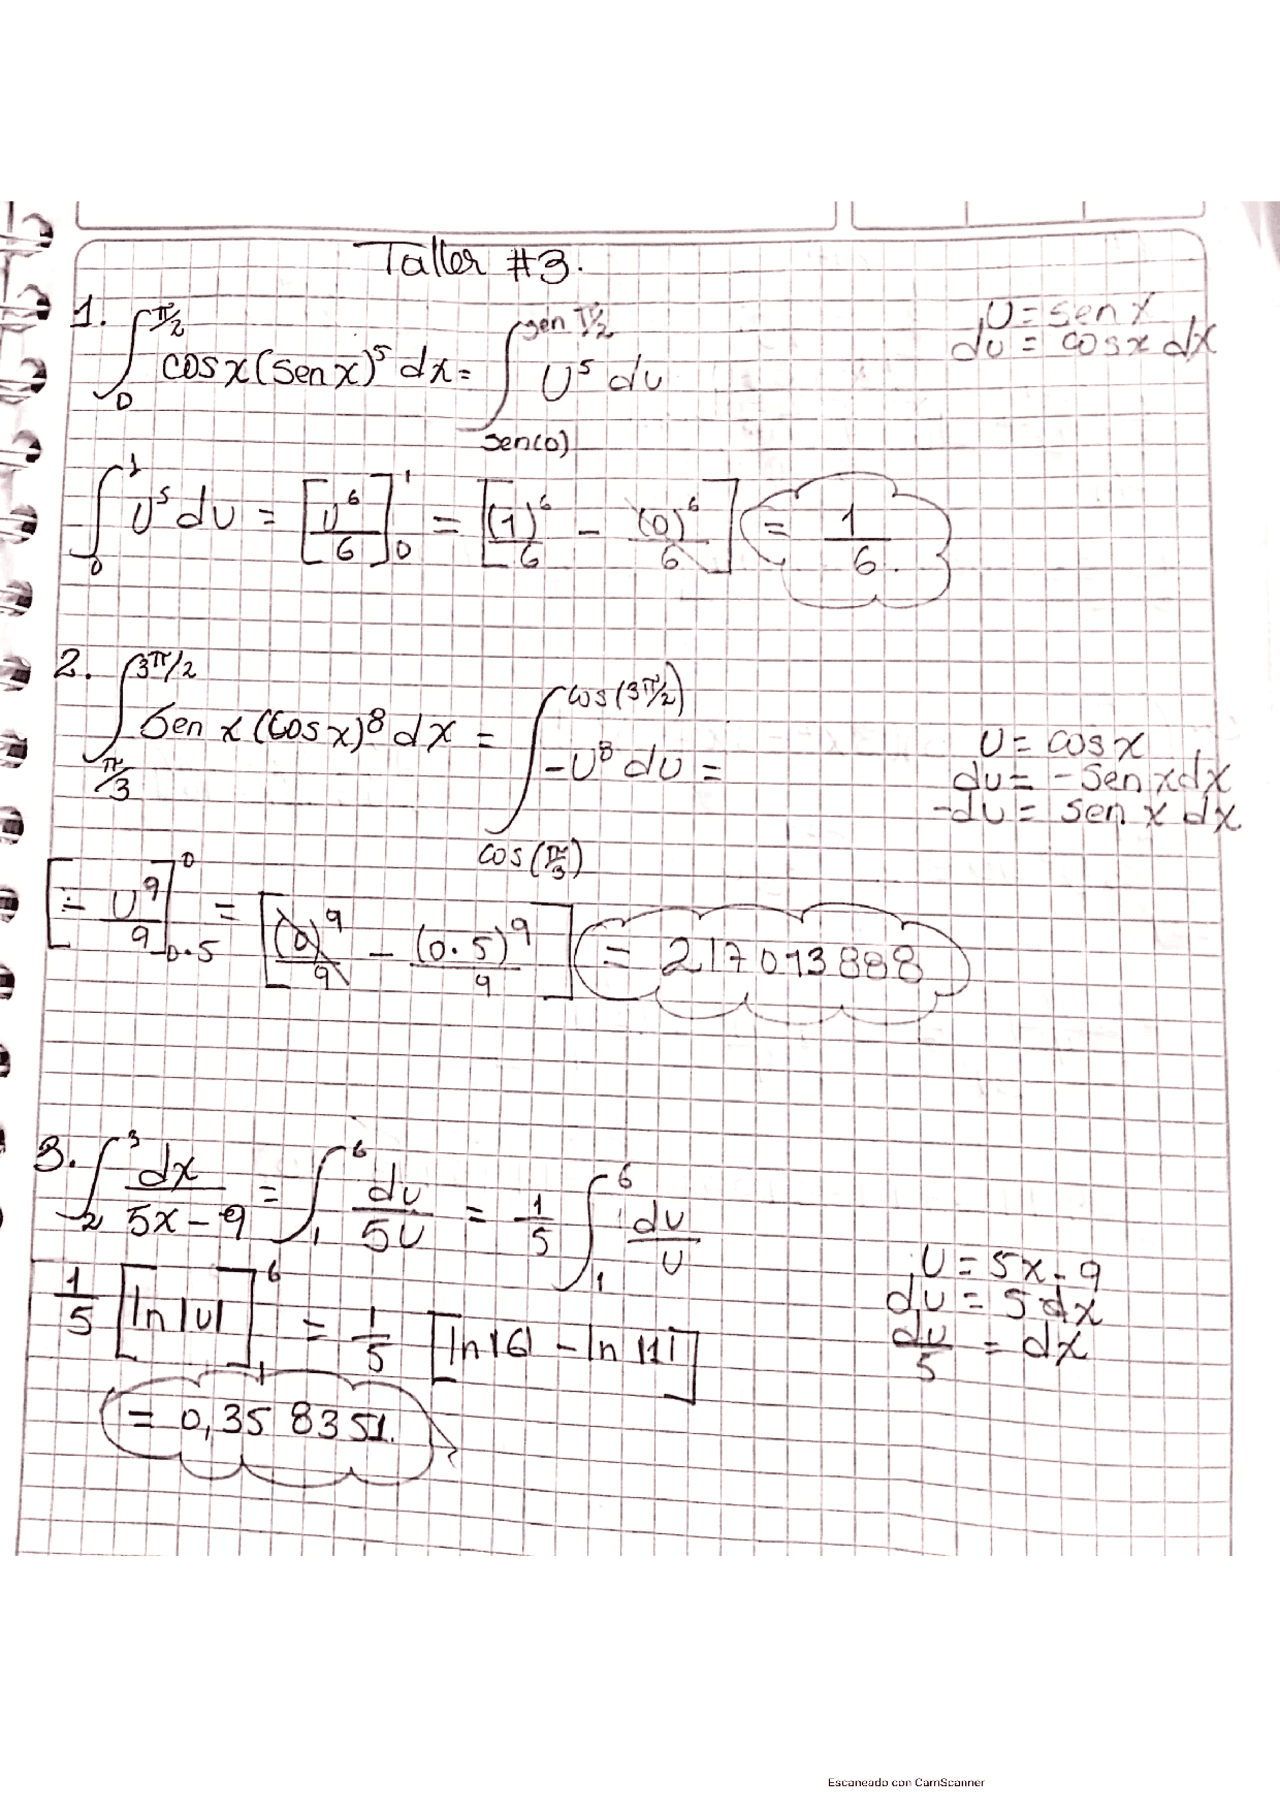 Taller #3.
1. ∫₀^{π/2} cos x (sen x)⁵ dx = ∫_{sen(0)}^{sen π/2} U⁵ du
U = sen x
du = cos x dx
∫₀¹ U⁵ du = [U⁶/6]₀¹ = [(1)⁶/6 - (0)⁶/6] = 1/6.
2. ∫_{π/3}^{3π/2} Sen x (Cos x)⁸ dx = ∫_{cos(π/3)}^{cos(3π/2)} -U⁸ du =
U = cos x
du = -Sen x dx
-du = sen x dx
[- U⁹/9]_{0.5}^{0} = [(0)⁹/9 - (0.5)⁹/9] = 217013888
3. ∫₂³ dx/(5x - 9) = ∫₁⁶ du/5U = 1/5 ∫₁⁶ du/U
U = 5x - 9
du = 5 dx
du/5 = dx
1/5 [ln |U|]₁⁶ = 1/5 [ln |6| - ln |1|]
= 0,358351.
Escaneado con CamScanner